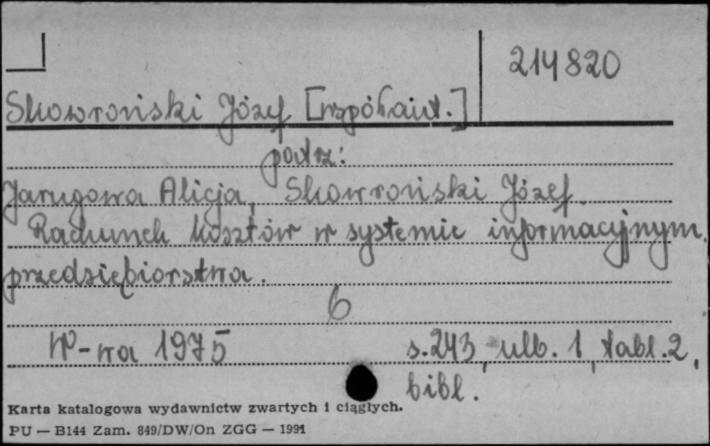 214820
Skowroński Józef [współaut.]
patrz:
Jarugowa Alicja, Skowroński Józef.
Rachunek kosztów w systemie informacyjnym
przedsiębiorstwa.
6
W-wa 1975 s. 243, ulb. 1, tabl. 2,
bibl.
Karta katalogowa wydawnictw zwartych i ciągłych.
PU — B144 Zam. 849/DW/On ZGG — 1991